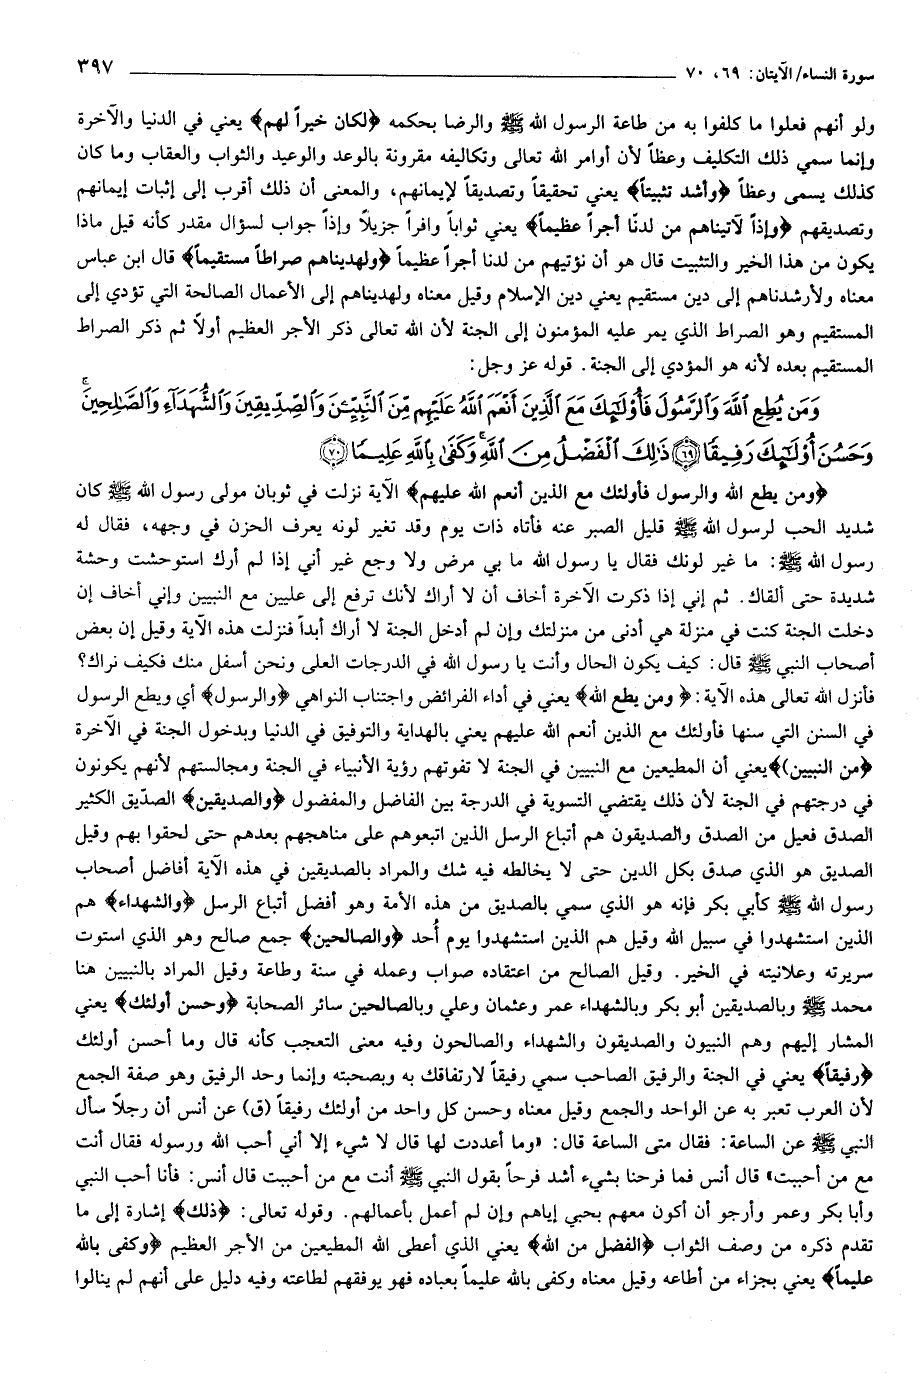 سورة النساء/ الآيتان: ٦٩، ٧٠ ٣٩٧
ولو أنهم فعلوا ما كلفوا به من طاعة الرسول الله ﷺ والرضا بحكمه ﴿لكان خيراً لهم﴾ يعني في الدنيا والآخرة
وإنما سمي ذلك التكليف وعظاً لأن أوامر الله تعالى وتكاليفه مقرونة بالوعد والوعيد والثواب والعقاب وما كان
كذلك يسمى وعظاً ﴿وأشد تثبيتاً﴾ يعني تحقيقاً وتصديقاً لإيمانهم، والمعنى أن ذلك أقرب إلى إثبات إيمانهم
وتصديقهم ﴿وإذاً لآتيناهم من لدنّا أجراً عظيماً﴾ يعني ثواباً وافراً جزيلاً وإذاً جواب لسؤال مقدر كأنه قيل ماذا
يكون من هذا الخير والتثبيت قال هو أن نؤتيهم من لدنا أجراً عظيماً ﴿ولهديناهم صراطاً مستقيماً﴾ قال ابن عباس
معناه ولأرشدناهم إلى دين مستقيم يعني دين الإسلام وقيل معناه ولهديناهم إلى الأعمال الصالحة التي تؤدي إلى
المستقيم وهو الصراط الذي يمر عليه المؤمنون إلى الجنة لأن الله تعالى ذكر الأجر العظيم أولاً ثم ذكر الصراط
المستقيم بعده لأنه هو المؤدي إلى الجنة. قوله عز وجل:
وَمَن يُطِعِ ٱللَّهَ وَٱلرَّسُولَ فَأُوْلَٰٓئِكَ مَعَ ٱلَّذِينَ أَنْعَمَ ٱللَّهُ عَلَيْهِم مِّنَ ٱلنَّبِيِّـۧنَ وَٱلصِّدِّيقِينَ وَٱلشُّهَدَآءِ وَٱلصَّٰلِحِينَۚ
وَحَسُنَ أُوْلَٰٓئِكَ رَفِيقًا ﴿٦٩﴾ ذَٰلِكَ ٱلْفَضْلُ مِنَ ٱللَّهِۚ وَكَفَىٰ بِٱللَّهِ عَلِيمًا ﴿٧٠﴾
﴿ومن يطع الله والرسول فأولئك مع الذين أنعم الله عليهم﴾ الآية نزلت في ثوبان مولى رسول الله ﷺ كان
شديد الحب لرسول الله ﷺ قليل الصبر عنه فأتاه ذات يوم وقد تغير لونه يعرف الحزن في وجهه، فقال له
رسول الله ﷺ: ما غير لونك فقال يا رسول الله ما بي مرض ولا وجع غير أني إذا لم أرك استوحشت وحشة
شديدة حتى ألقاك. ثم إني إذا ذكرت الآخرة أخاف أن لا أراك لأنك ترفع إلى عليين مع النبيين وإني أخاف إن
دخلت الجنة كنت في منزلة هي أدنى من منزلتك وإن لم أدخل الجنة لا أراك أبداً فنزلت هذه الآية وقيل إن بعض
أصحاب النبي ﷺ قال: كيف يكون الحال وأنت يا رسول الله في الدرجات العلى ونحن أسفل منك فكيف نراك؟
فأنزل الله تعالى هذه الآية: ﴿ ومن يطع الله﴾ يعني في أداء الفرائض واجتناب النواهي ﴿والرسول﴾ أي ويطع الرسول
في السنن التي سنها فأولئك مع الذين أنعم الله عليهم يعني بالهداية والتوفيق في الدنيا وبدخول الجنة في الآخرة
﴿من النبيين)﴾يعني أن المطيعين مع النبيين في الجنة لا تفوتهم رؤية الأنبياء في الجنة ومجالستهم لأنهم يكونون
في درجتهم في الجنة لأن ذلك يقتضي التسوية في الدرجة بين الفاضل والمفضول ﴿والصديقين﴾ الصدّيق الكثير
الصدق فعيل من الصدق والصديقون هم أتباع الرسل الذين اتبعوهم على مناهجهم بعدهم حتى لحقوا بهم وقيل
الصديق هو الذي صدق بكل الدين حتى لا يخالطه فيه شك والمراد بالصديقين في هذه الآية أفاضل أصحاب
رسول الله ﷺ كأبي بكر فإنه هو الذي سمي بالصديق من هذه الأمة وهو أفضل أتباع الرسل ﴿والشهداء﴾ هم
الذين استشهدوا في سبيل الله وقيل هم الذين استشهدوا يوم أُحد ﴿والصالحين﴾ جمع صالح وهو الذي استوت
سريرته وعلانيته في الخير. وقيل الصالح من اعتقاده صواب وعمله في سنة وطاعة وقيل المراد بالنبيين هنا
محمد ﷺ وبالصديقين أبو بكر وبالشهداء عمر وعثمان وعلي وبالصالحين سائر الصحابة ﴿وحسن أولئك﴾ يعني
المشار إليهم وهم النبيون والصديقون والشهداء والصالحون وفيه معنى التعجب كأنه قال وما أحسن أولئك
﴿رفيقاً﴾ يعني في الجنة والرفيق الصاحب سمي رفيقاً لارتفاقك به وبصحبته وإنما وحد الرفيق وهو صفة الجمع
لأن العرب تعبر به عن الواحد والجمع وقيل معناه وحسن كل واحد من أولئك رفيقاً (ق) عن أنس أن رجلاً سأل
النبي ﷺ عن الساعة: فقال متى الساعة قال: «وما أعددت لها قال لا شيء إلا أني أحب الله ورسوله فقال أنت
مع من أحببت» قال أنس فما فرحنا بشيء أشد فرحاً بقول النبي ﷺ أنت مع من أحببت قال أنس: فأنا أحب النبي
وأبا بكر وعمر وأرجو أن أكون معهم بحبي إياهم وإن لم أعمل بأعمالهم. وقوله تعالى: ﴿ذلك﴾ إشارة إلى ما
تقدم ذكره من وصف الثواب ﴿الفضل من الله﴾ يعني الذي أعطى الله المطيعين من الأجر العظيم ﴿وكفى بالله
عليماً﴾ يعني بجزاء من أطاعه وقيل معناه وكفى بالله عليماً بعباده فهو يوفقهم لطاعته وفيه دليل على أنهم لم ينالوا